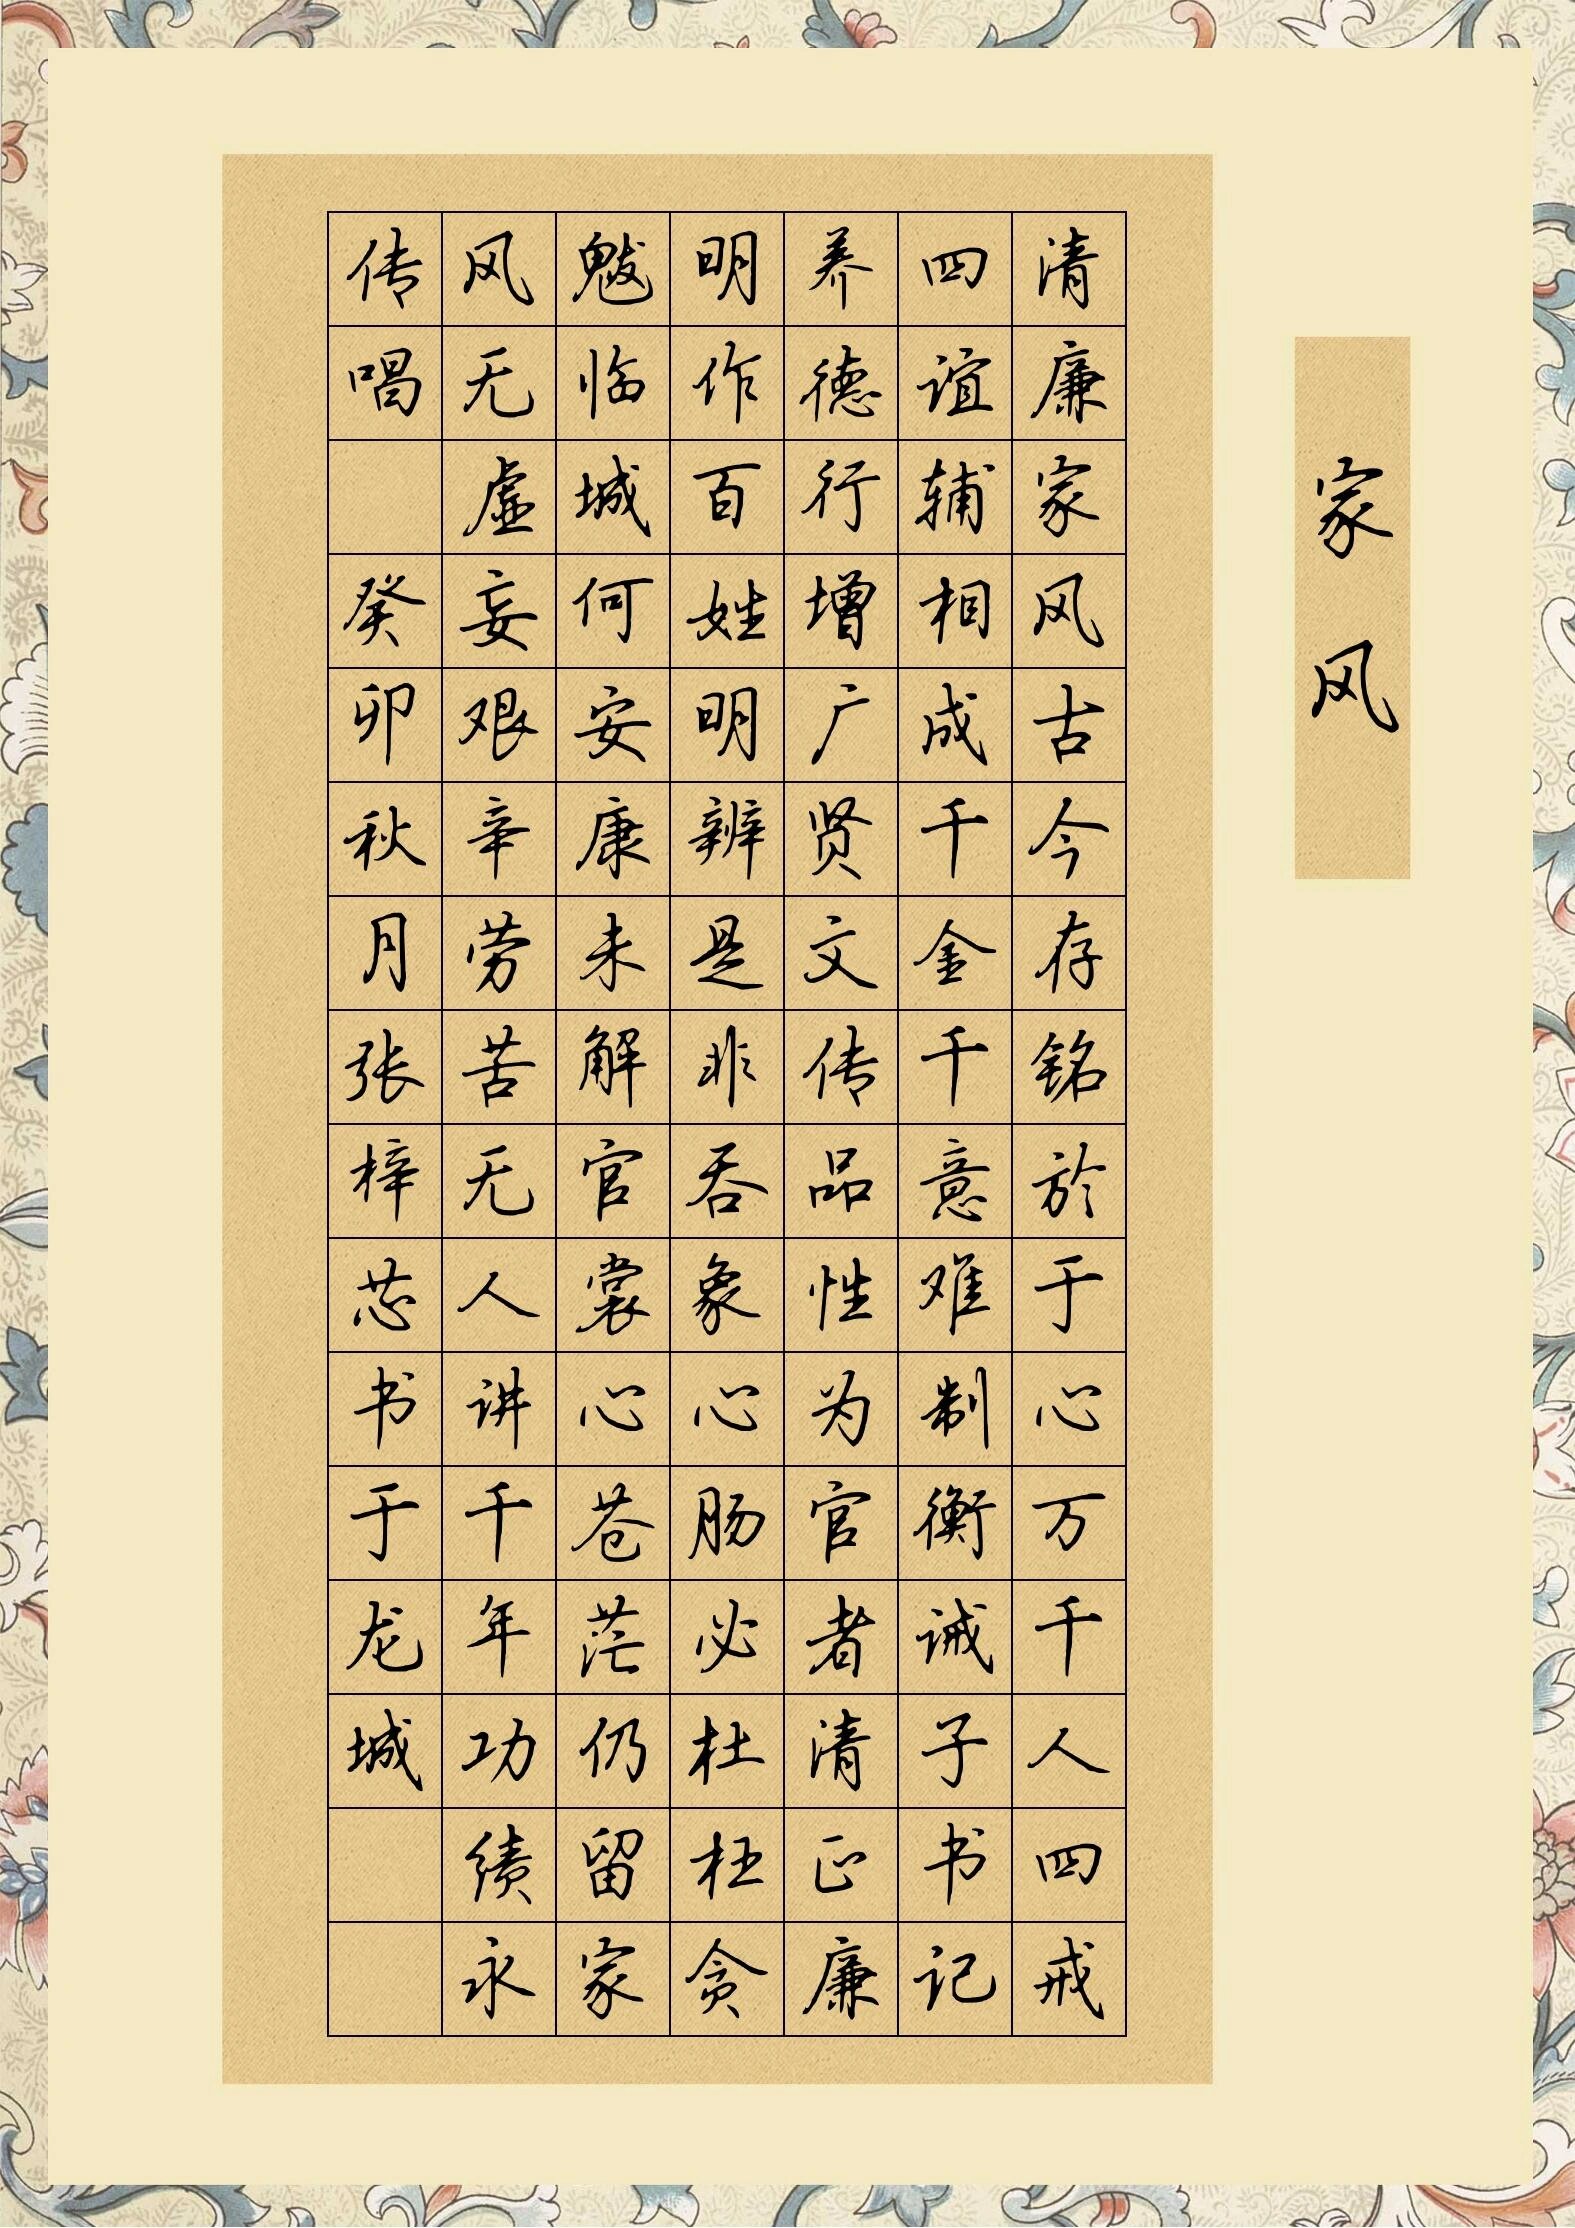 家风
清廉家风古今存铭於于心万千人四戒
四谊辅相成千金千意难制衡诫子书记
养德行增广贤文传品性为官者清正廉
明作百姓明辨是非吞象心肠必杜枉贪
魃临城何安康未解官裳心苍茫仍留家
风无虚妄艰辛劳苦无人讲千年功绩永
传唱 癸卯秋月张梓芯书于龙城